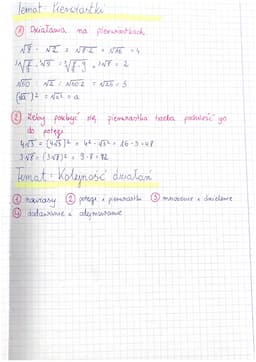 Temat: Pierwiastki
① Działania na pierwiastkach
√8 · √2 = √8·2 = √16 = 4
√50 : √2 = √50:2 = √25 = 5
(√a)² = √a² = a
② Żeby pozbyć się pierwiastka trzeba podnieść go
do potęgi
4√3 = (4√3)² = 4² · √3² = 16 · 3 = 48
3√8 = (3√8)² = 9 · 8 = 72
Temat: Kolejność działań
① nawiasy ② potęgi i pierwiastki ③ mnożenie i dzielenie
④ dodawanie i odejmowanie